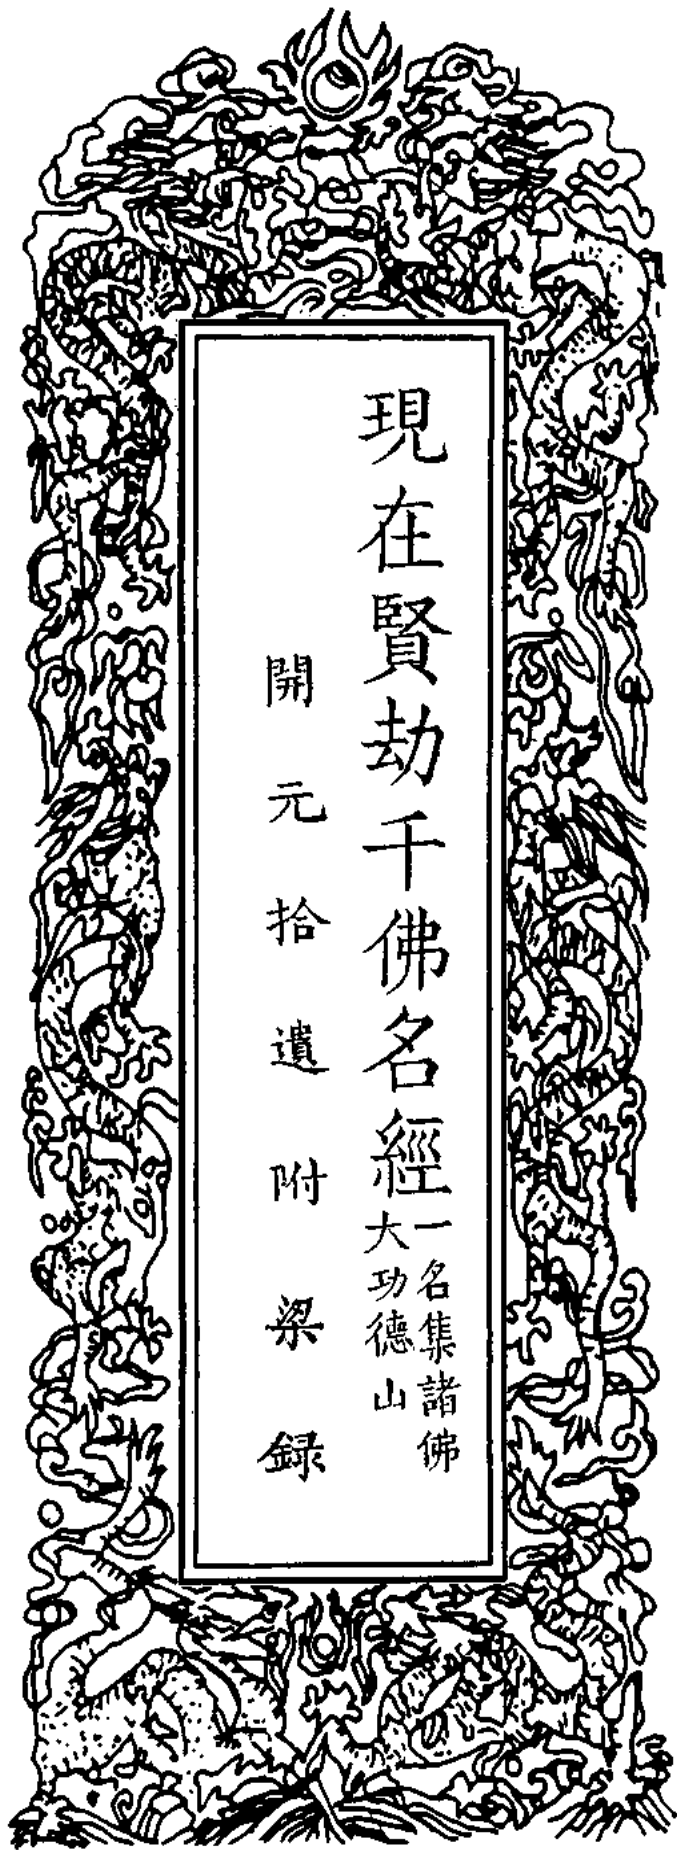 現在賢劫千佛名經
一名集諸佛
大功德山
開元拾遺附梁録